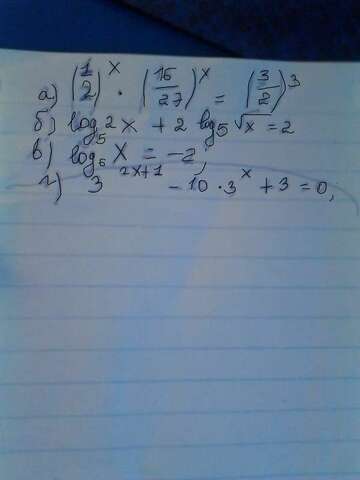 а) (1/2)^x · (16/27)^x = (3/2)^3
б) log₅2x + 2 log₅√x = 2
в) log₆ x = -2,
г) 3^(2x+1) - 10 · 3^x + 3 = 0,